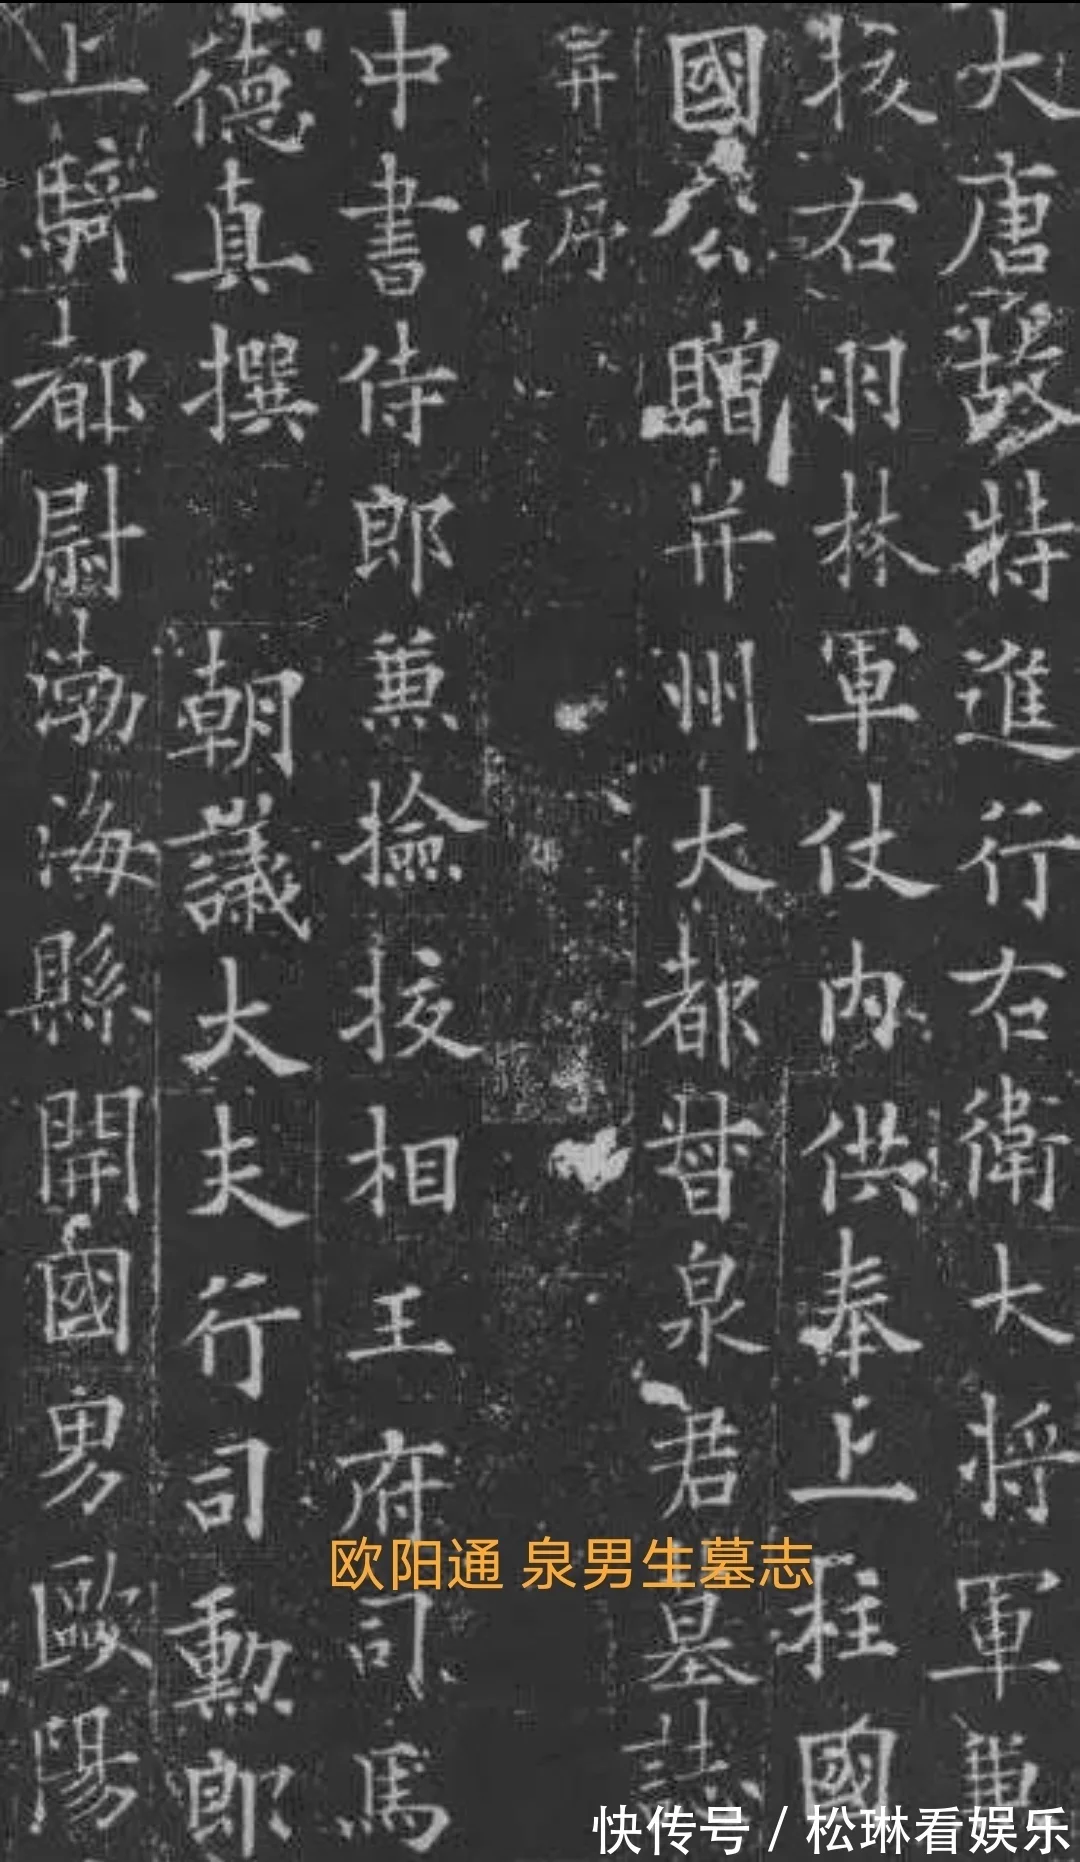 大唐故特進行右衛大將軍兼
挍右羽林軍仗内供奉上柱國
國公贈并州大都督泉君墓誌
并序
中書侍郎兼撿挍相王府司馬
德真撰 朝議大夫行司勳郎
上騎都尉渤海縣開國男歐陽
欧阳通 泉男生墓志
快传号 / 松琳看娱乐